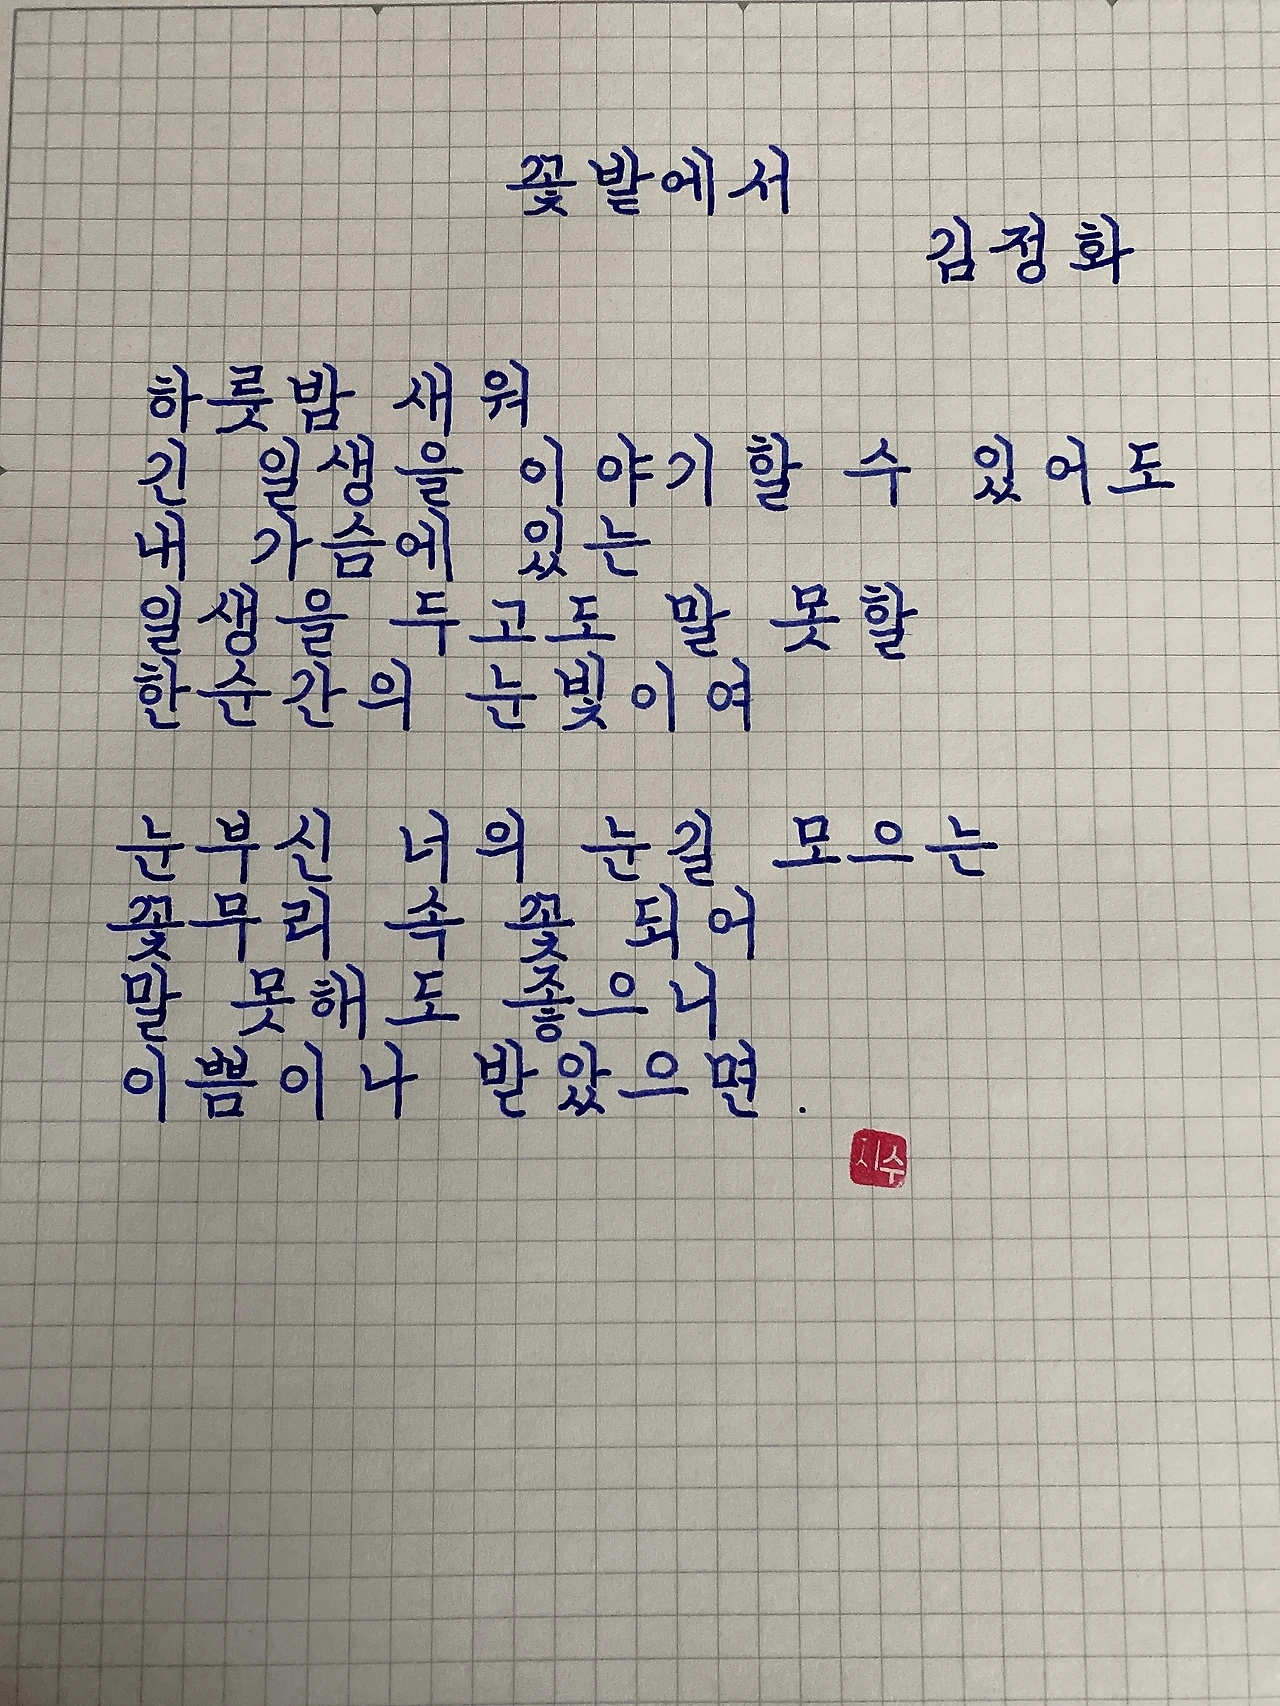 꽃밭에서
김정화
하룻밤 새워
긴 일생을 이야기할 수 있어도
내 가슴에 있는
일생을 두고도 말 못할
한순간의 눈빛이여
눈부신 너의 눈길 모으는
꽃무리 속 꽃 되어
말 못해도 좋으니
이쁨이나 받았으면.
지수